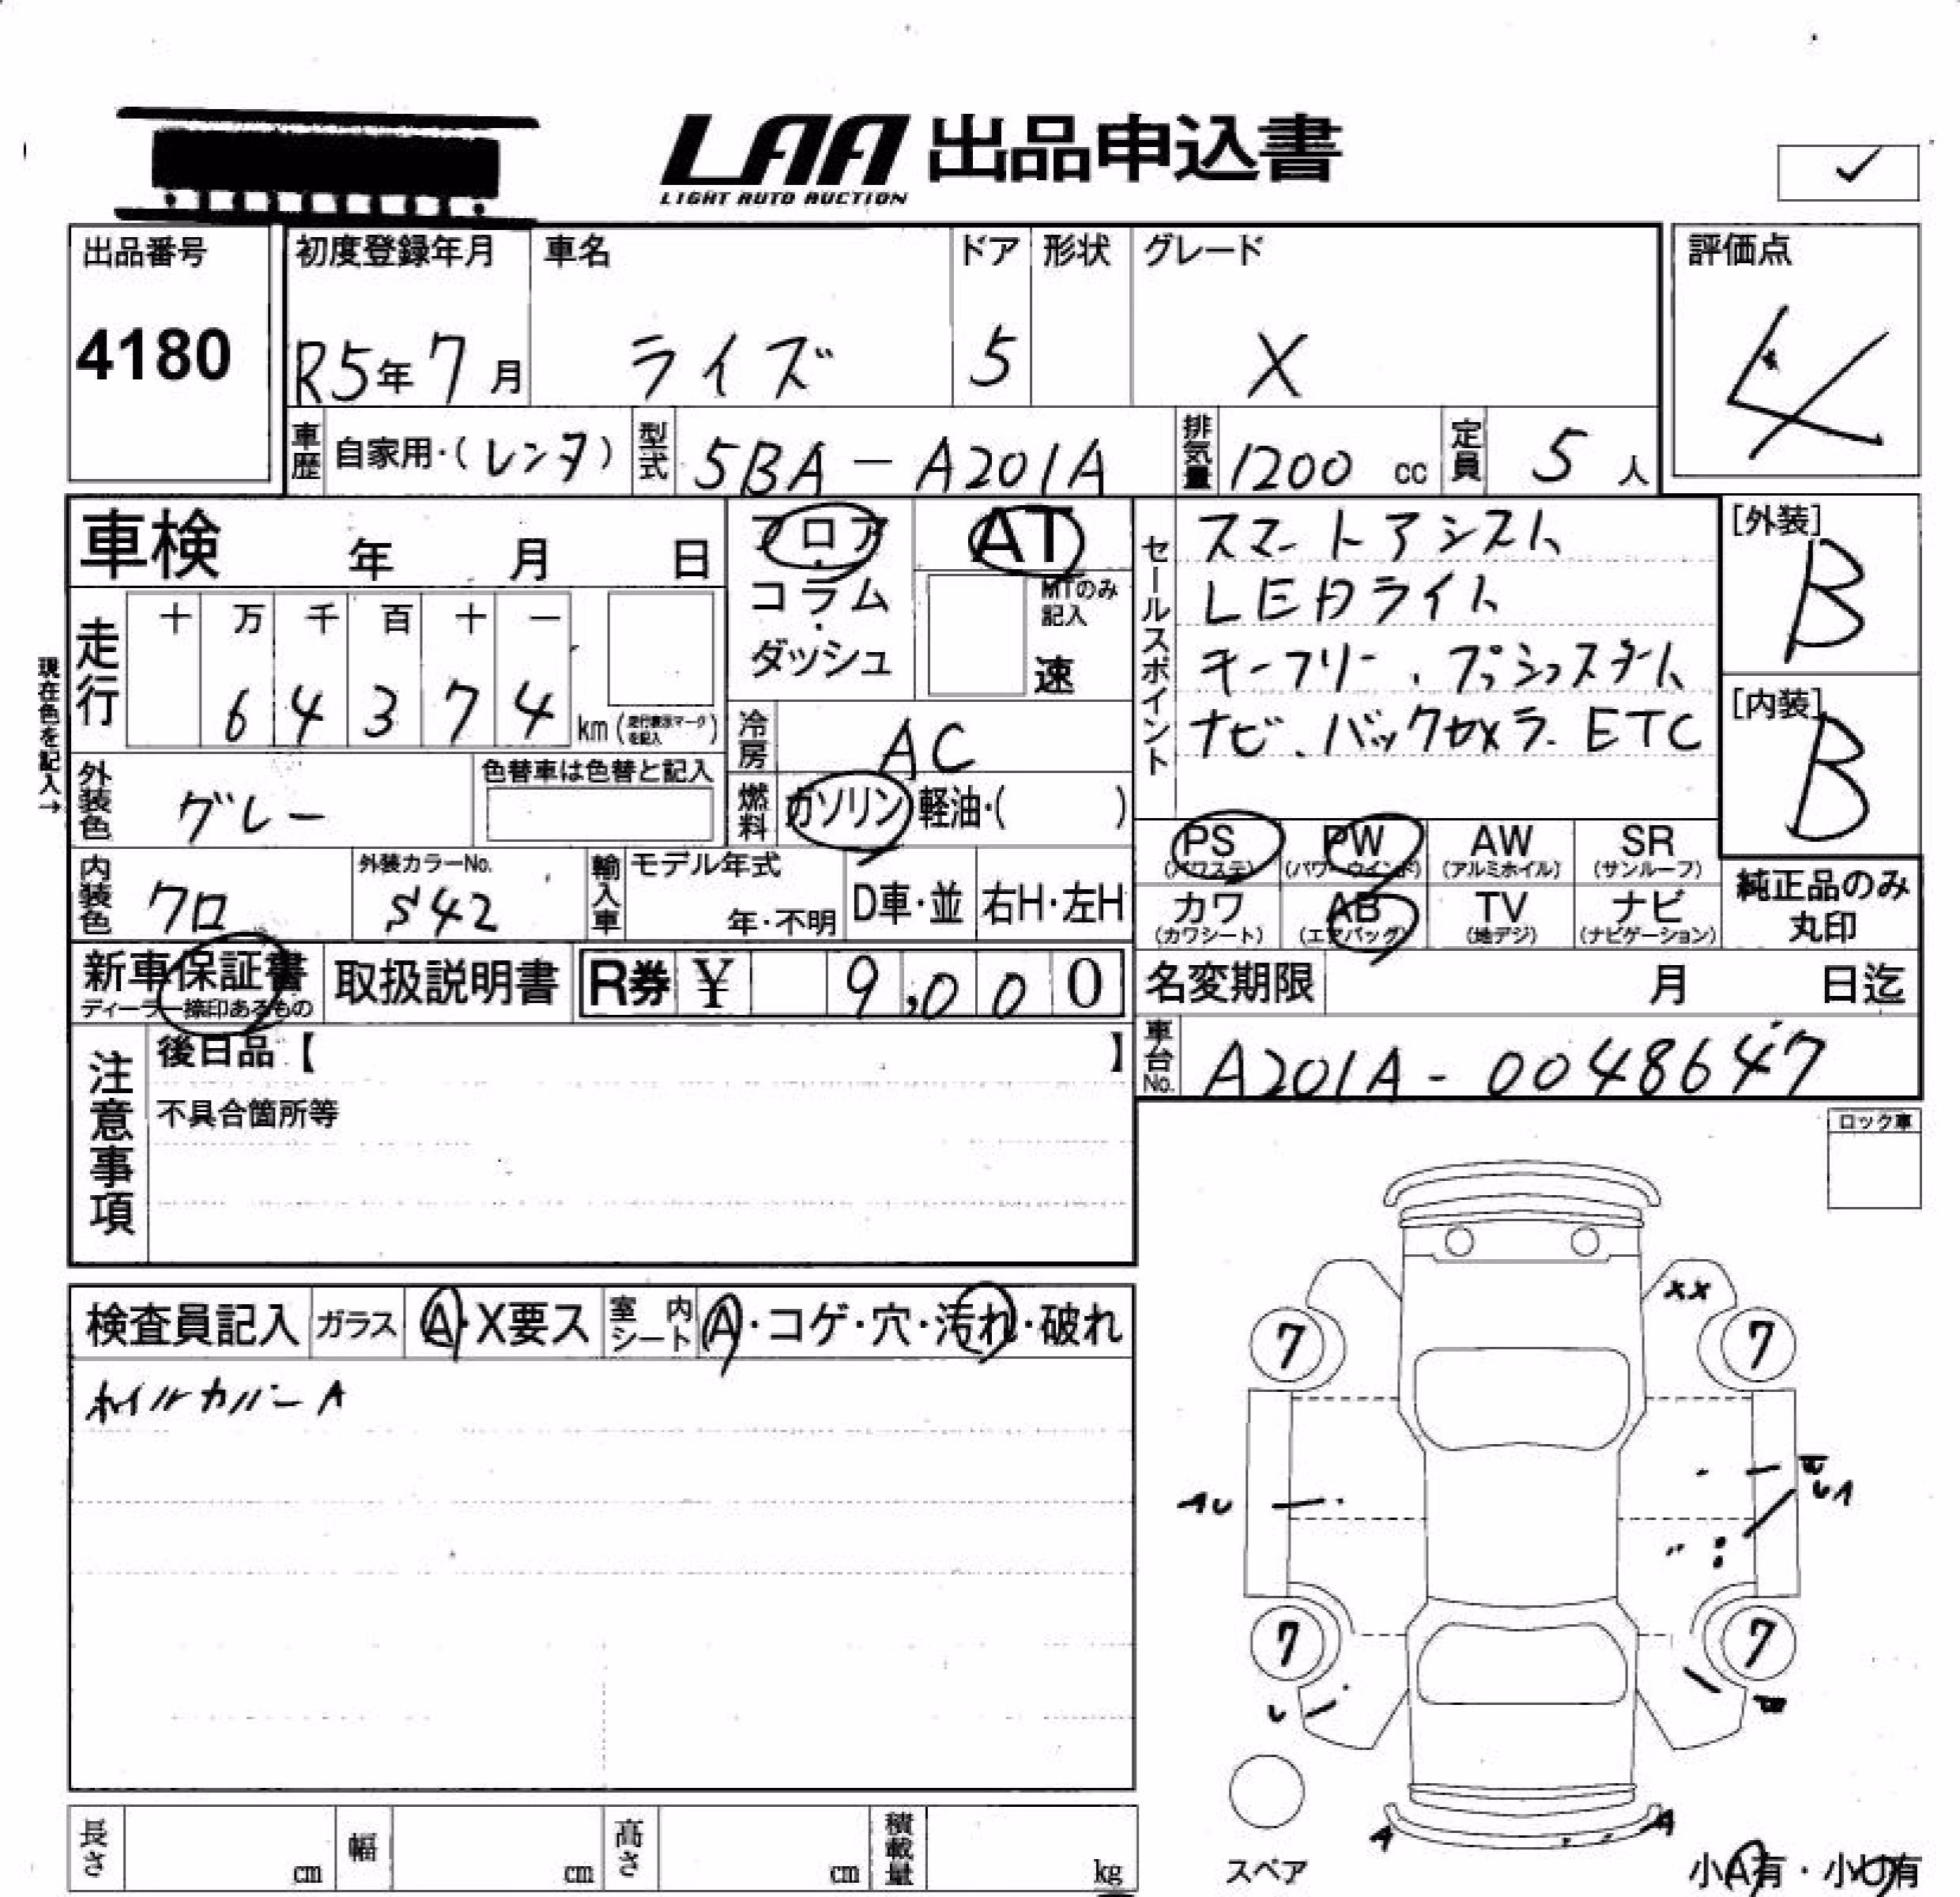 LAA 出品申込書
LIGHT AUTO AUCTION
出品番号
4180
初度登録年月
R5年7月
車名
ライズ
ドア
5
形状
グレード
X
評価点
4
車歴
自家用・(レンタ)
型式
5BA-A201A
排気量
1200 cc
定員
5人
車検 年 月 日
フロア・コラム・ダッシュ
AT
MTのみ記入
速
セールスポイント
スマートアシスト
LEDライト
キーフリー、プッシュスタート
ナビ、バックカメラ、ETC
[外装]
B
[内装]
B
現在色を記入→
走行
十 万 千 百 十 一
6 4 3 7 4 km(走行表示マークを記入)
冷房
AC
外装色
グレー
色替車は色替と記入
燃料
ガソリン・軽油・( )
PS (パワステ)
PW (パワーウインド)
AW (アルミホイル)
SR (サンルーフ)
カワ (カワシート)
AB (エアバッグ)
TV (地デジ)
ナビ (ナビゲーション)
純正品のみ丸印
内装色
クロ
外装カラーNo.
S42
輸入車
モデル年式
年・不明
D車・並
右H・左H
新車保証書
ディーラー捺印あるもの
取扱説明書
R券 ¥ 9,000
名変期限 月 日迄
車台No.
A201A-0048647
注意事項
後日品【 】
不具合箇所等
ロック車
検査員記入
ガラス
A・X要ス
室内シート
A・コゲ・穴・汚れ・破れ
ホイルカバーA
XX
7 7
7 7
A A
スペア
小A有・小U有
長さ cm
幅 cm
高さ cm
積載量 kg